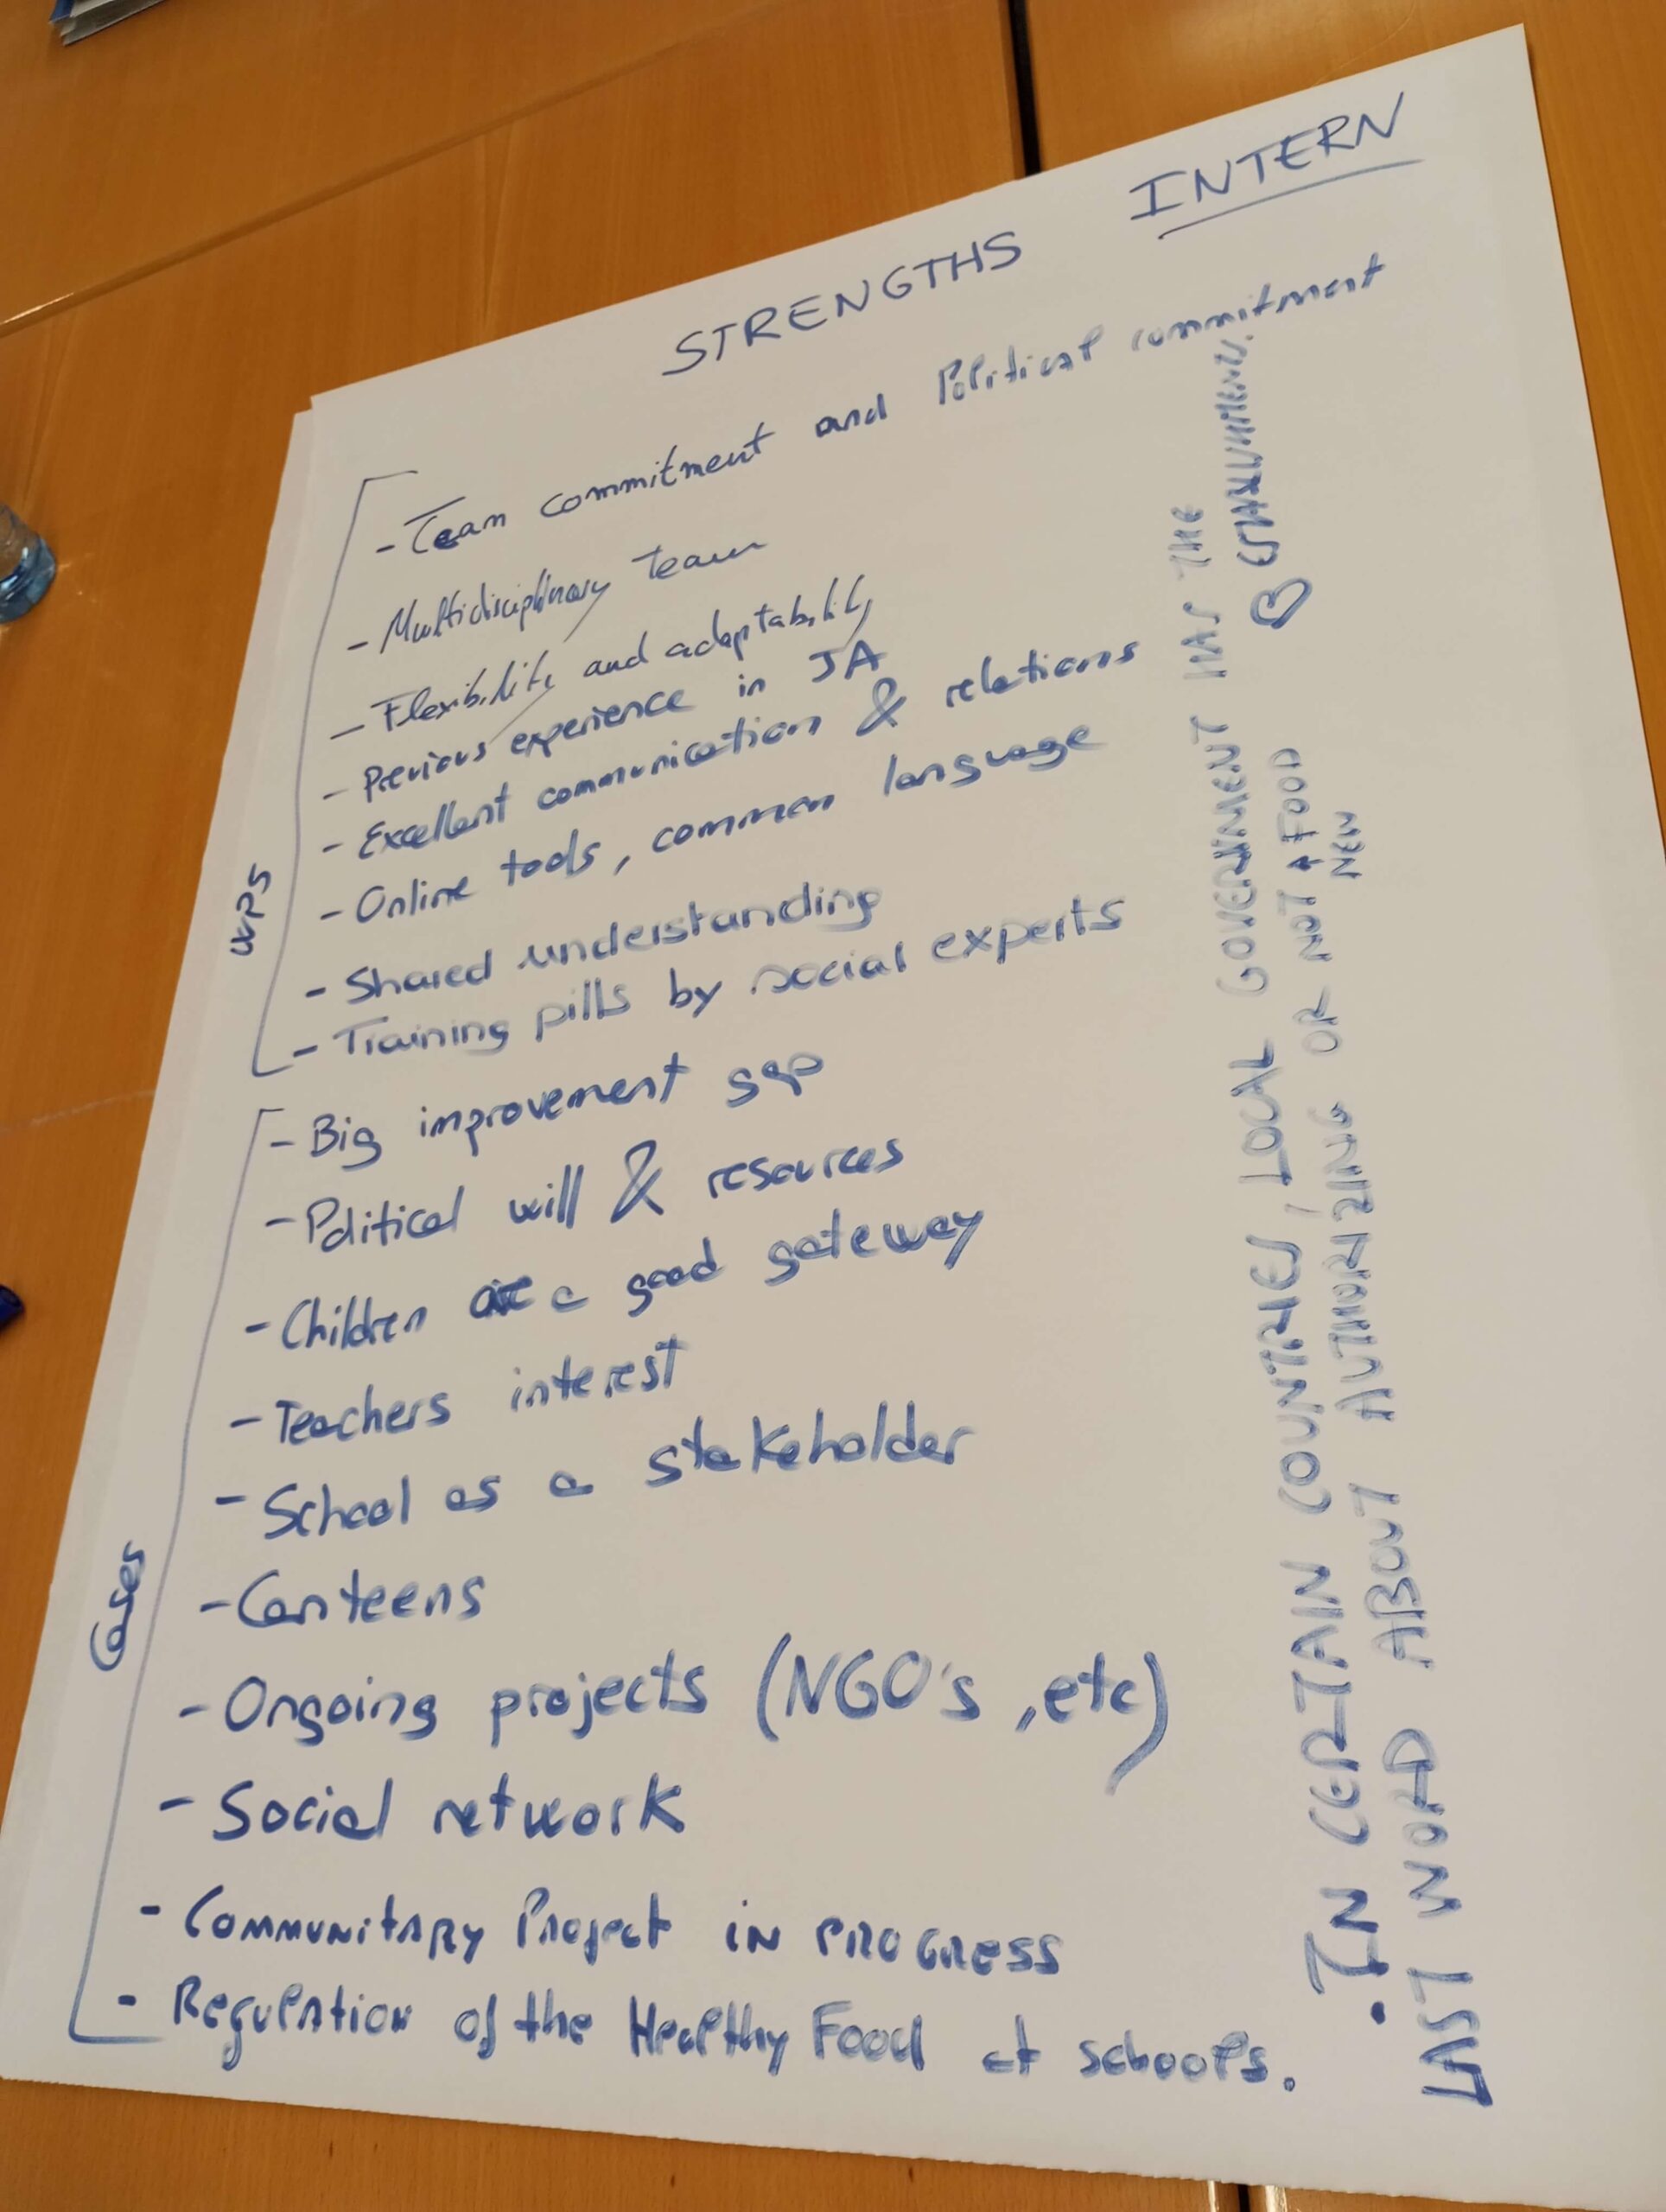 STRENGTHS INTERN
- Team commitment and Political commitment
- Multidisciplinary team
- Flexibility and adaptability
- Previous experience in JA
- Excellent communication & relations
- Online tools, common language
- Shared understanding
- Training pills by social experts
- Big improvement gap
- Political will & resources
- Children are a good gateway
- Teachers interest
- School as a stakeholder
- Canteens
- Ongoing projects (NGO's, etc)
- Social network
- Communitary Project in progress
- Regulation of the Healthy Food at schools.
Cases
. IN CERTAIN COUNTRIES, LOCAL GOVERNMENT HAS THE
LAST WORD ABOUT AUTHORIZING OR NOT A FOOD
NEW